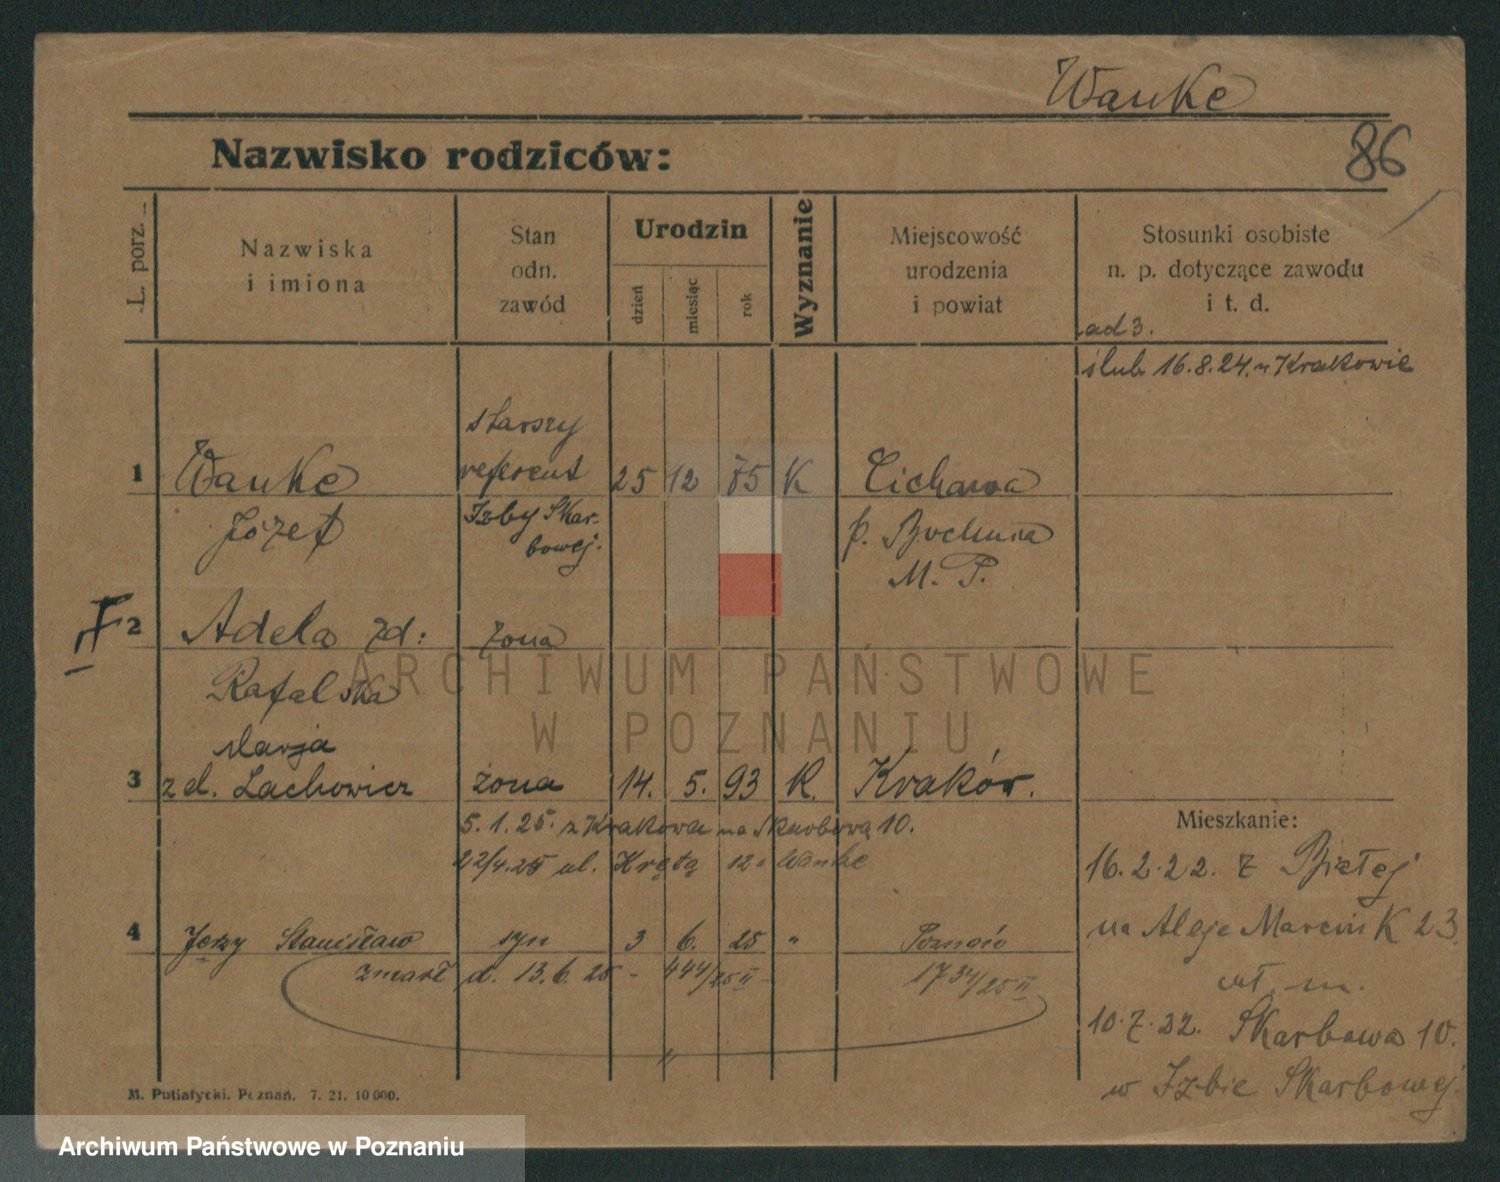 Wanke
86
Nazwisko rodziców:
L. porz.
Nazwiska
i imiona
Stan
odn.
zawód
Urodzin
dzień
miesiąc
rok
Wyznanie
Miejscowość
urodzenia
i powiat
Stosunki osobiste
n. p. dotyczące zawodu
i t. d.
ad 3.
ślub 16.8.24. w Krakowie
starszy
1 Wanke referent 25 12 85 K Cichawa
Józef Izby Skar-
bowej. p. Bochnia
M. P.
2 Adela zd: żona
Rafalska
Marja
3 zd. Lachowicz żona 14. 5. 93 K. Kraków.
5. 1. 25. z Krakowa na Skarbową 10.
22/4.25 ul. Krętą 12 Wanke
Mieszkanie:
16. 2. 22. z Białej
na Aleje Marcink 23
wł. m.
10. 7. 22. Skarbowa 10.
w Izbie Skarbowej.
4 Jerzy Stanisław syn 3 6. 25 " Poznań
zmarł d. 13. 6. 25 - 444/25 II - 1734/25 II
M. Putiatycki. Poznań. 7. 21. 10 000.
ARCHIWUM PAŃSTWOWE
W POZNANIU
Archiwum Państwowe w Poznaniu